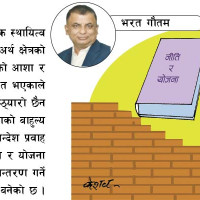 भरत गौतम
क स्थायित्व
अर्थ क्षेत्रको
को आशा र
त भएकाले
ठ्यारो छैन
ाको बाहुल्य
न्देश प्रवाह
र योजना
न्तरण गर्ने
बनेको छ ।
नीति
र
योजना
केशव